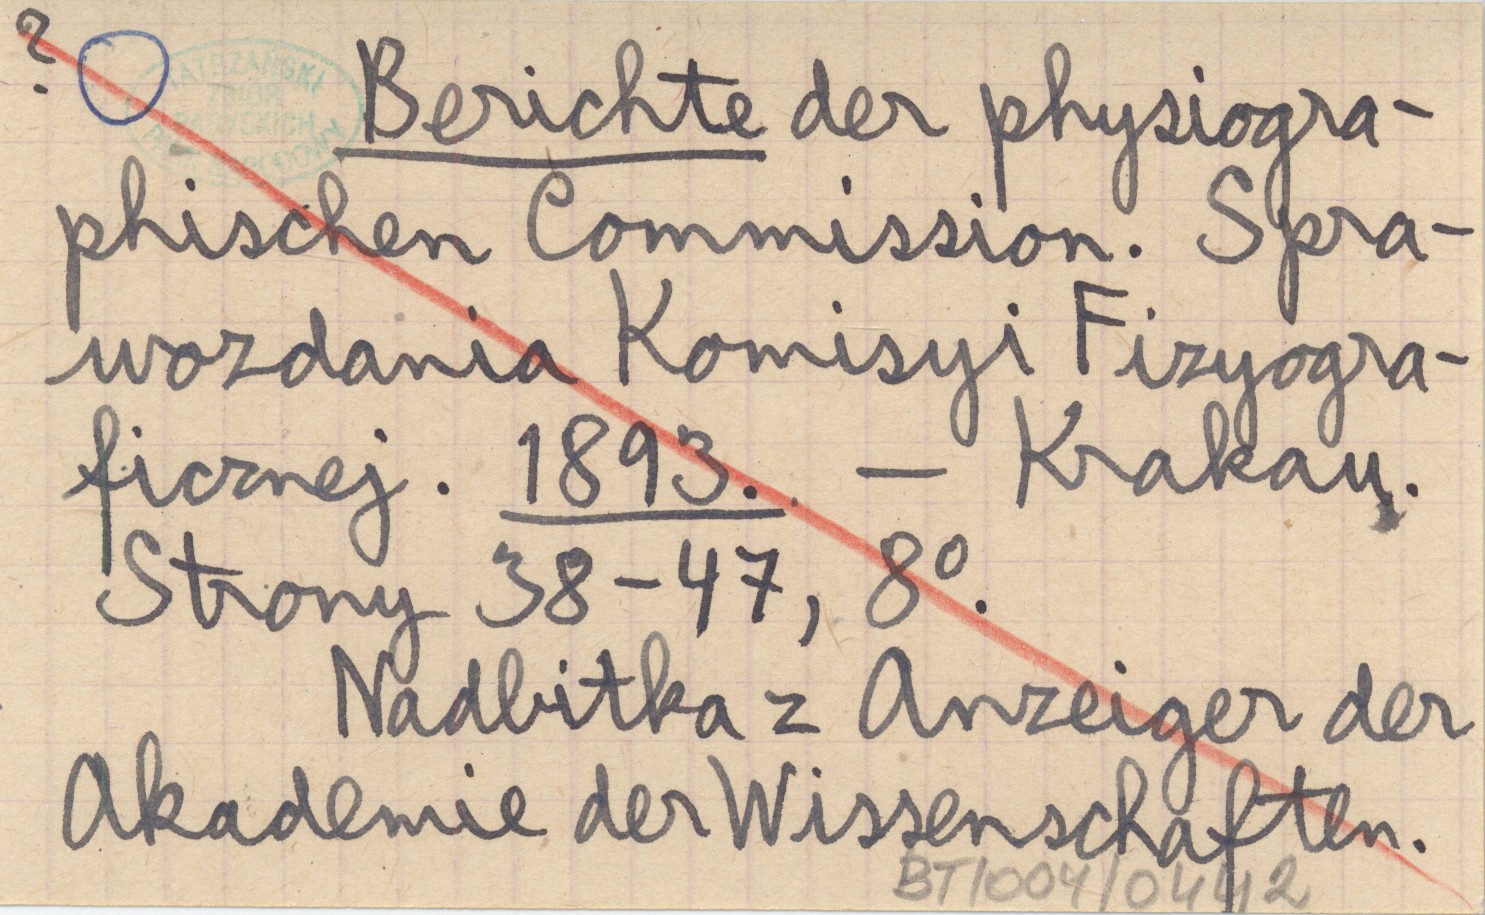 ?
TATRZAŃSKI
ZBIÓR
Berichte der physiogra-
phischen Commission. Spra-
wozdania Komisyi Fizyogra-
ficznej. 1893. — Krakau.
Strony 38-47, 8°.
Nadbitka z Anzeiger der
Akademie der Wissenschaften.
BT/004/0442